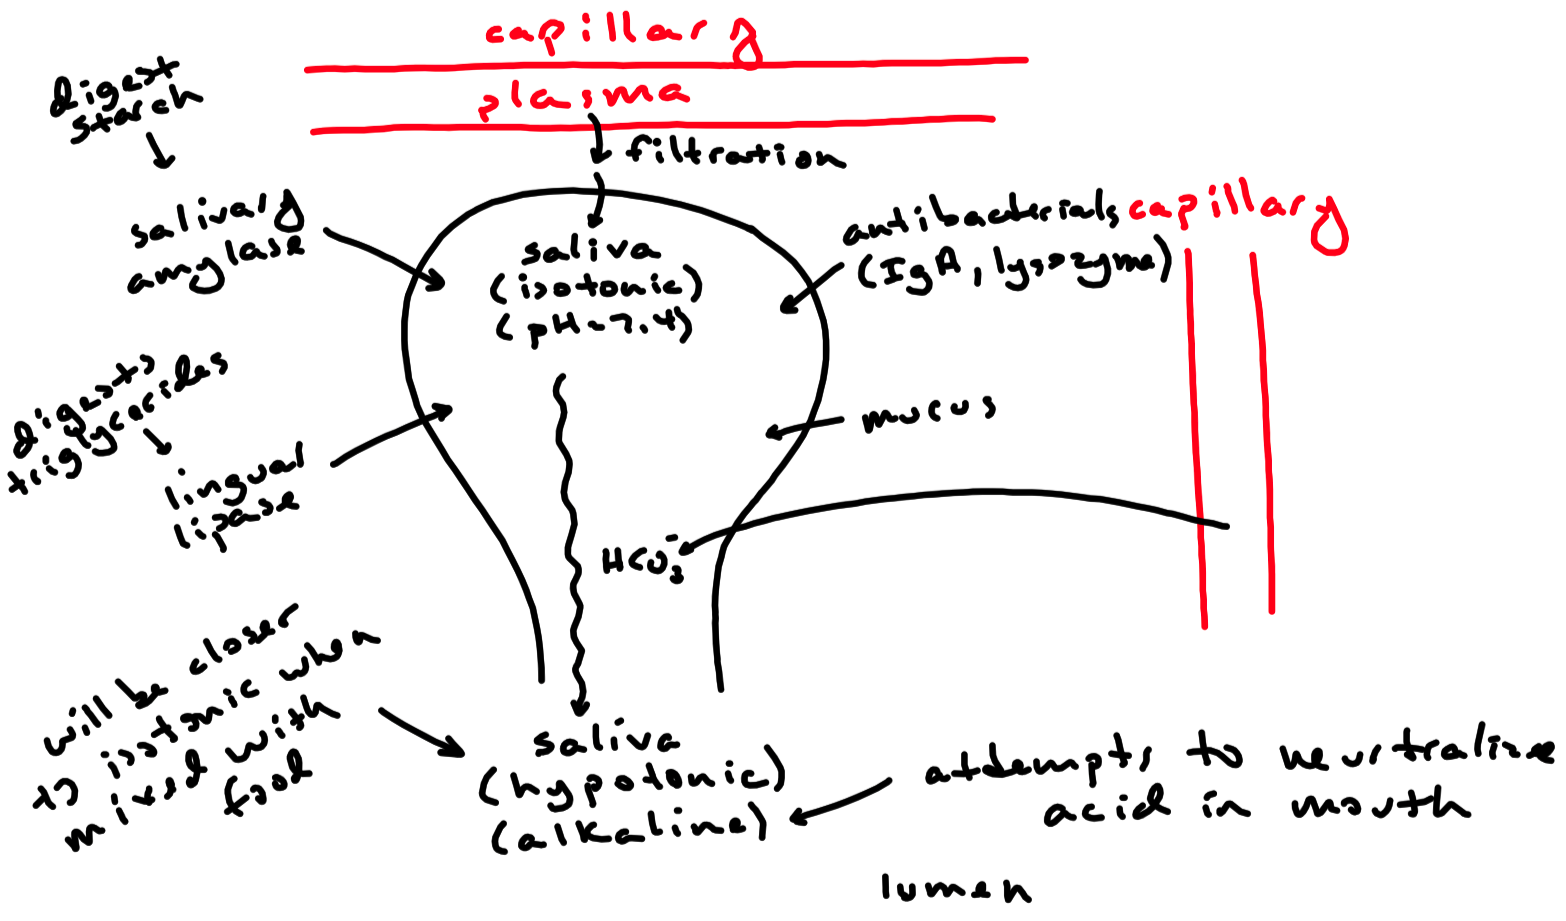 capillary
plasma
filtration
digest
starch
salivary
amylase
saliva
(isotonic)
(pH~7.4)
antibacterials
(IgA, lysozyme)
capillary
digests
triglycerides
lingual
lipase
mucus
HCO3-
will be closer
to isotonic when
mixed with
food
saliva
(hypotonic)
(alkaline)
attempts to neutralize
acid in mouth
lumen